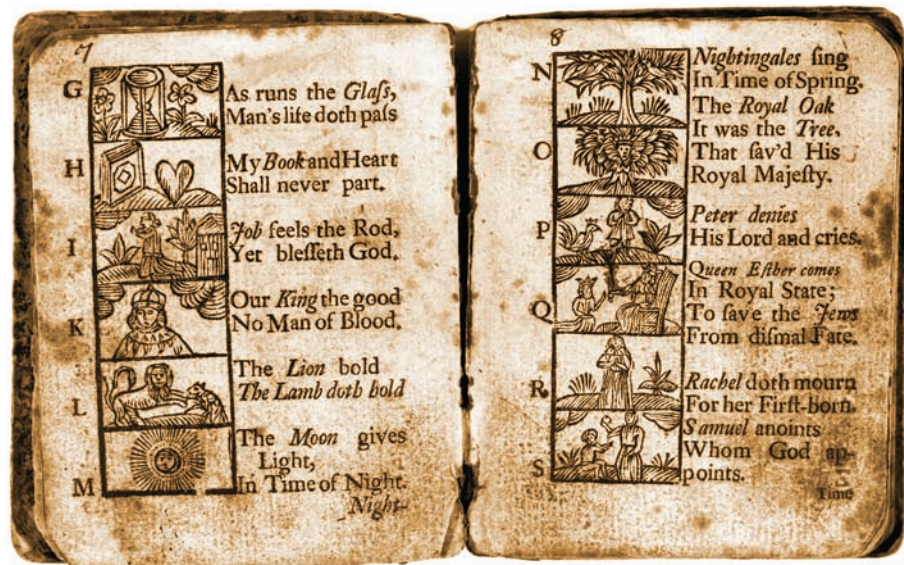 7
G
As runs the Glaſs,
Man's life doth paſs
H
My Book and Heart
Shall never part.
I
Job feels the Rod,
Yet bleſſeth God.
K
Our King the good
No Man of Blood.
L
The Lion bold
The Lamb doth hold
M
The Moon gives
Light,
In Time of Night.
Night-
8
N
Nightingales ſing
In Time of Spring.
O
The Royal Oak
It was the Tree,
That ſav'd His
Royal Majeſty.
P
Peter denies
His Lord and cries.
Q
Queen Eſther comes
In Royal State;
To ſave the Jews
From diſmal Fate.
R
Rachel doth mourn
For her Firſt-born.
S
Samuel anoints
Whom God ap-
points.
Time